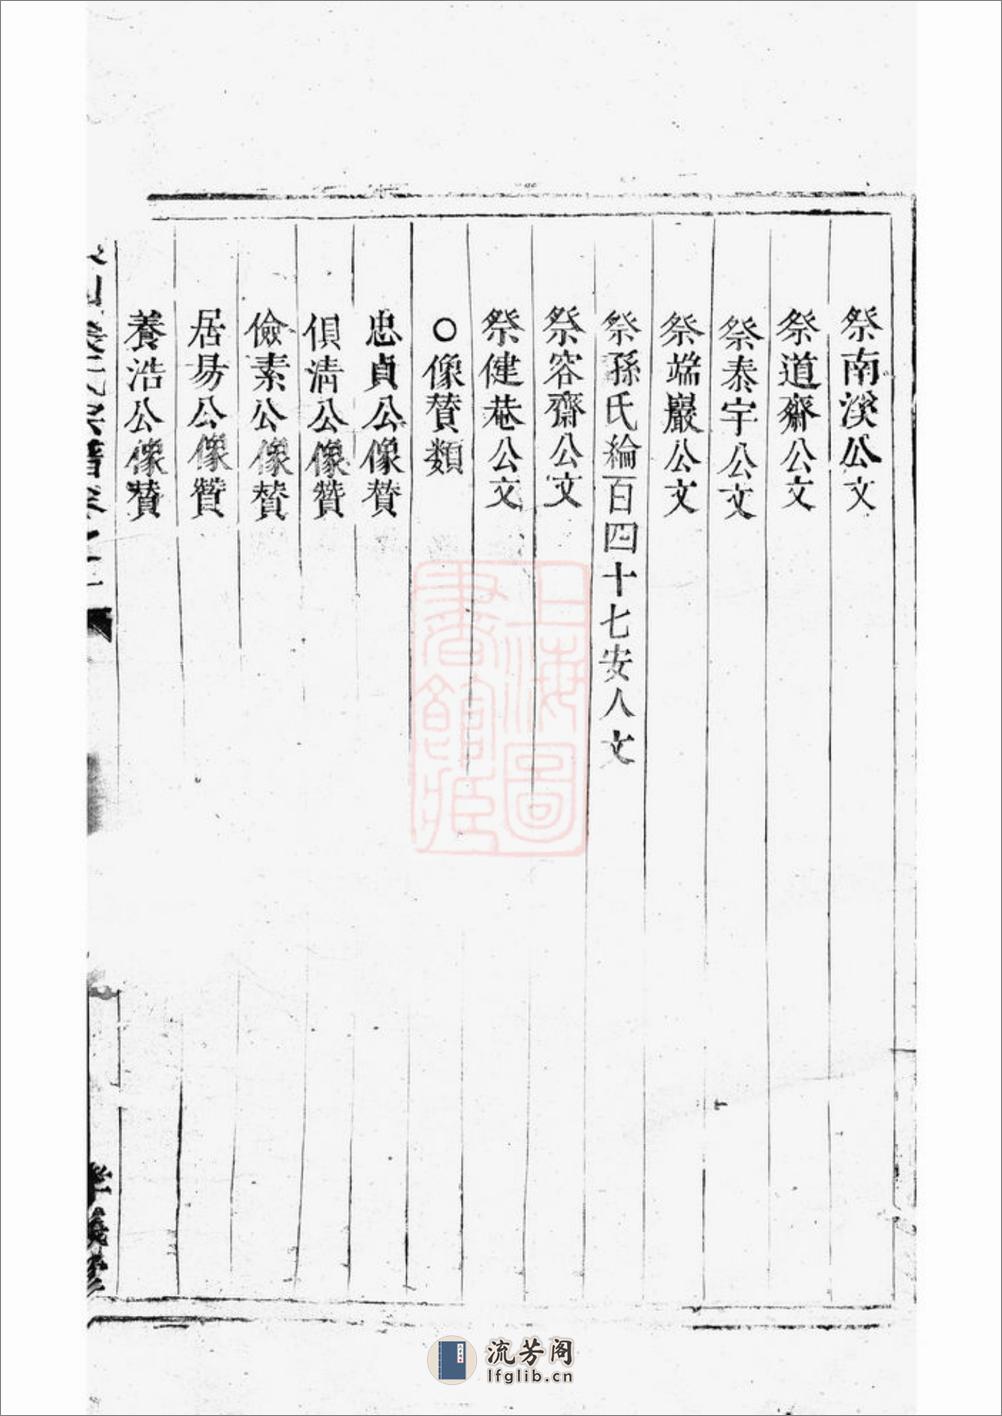 祭南溪公文
祭道齋公文
祭泰宇公文
祭端巖公文
祭孫氏綸百四十七安人文
祭容齋公文
祭健菴公文
○像賛類
忠貞公像賛
俱清公像贊
儉素公像賛
居易公像贊
養浩公像賛
氏宗譜卷之
孝義堂
上海圖書館藏
流芳阁
lfglib.cn